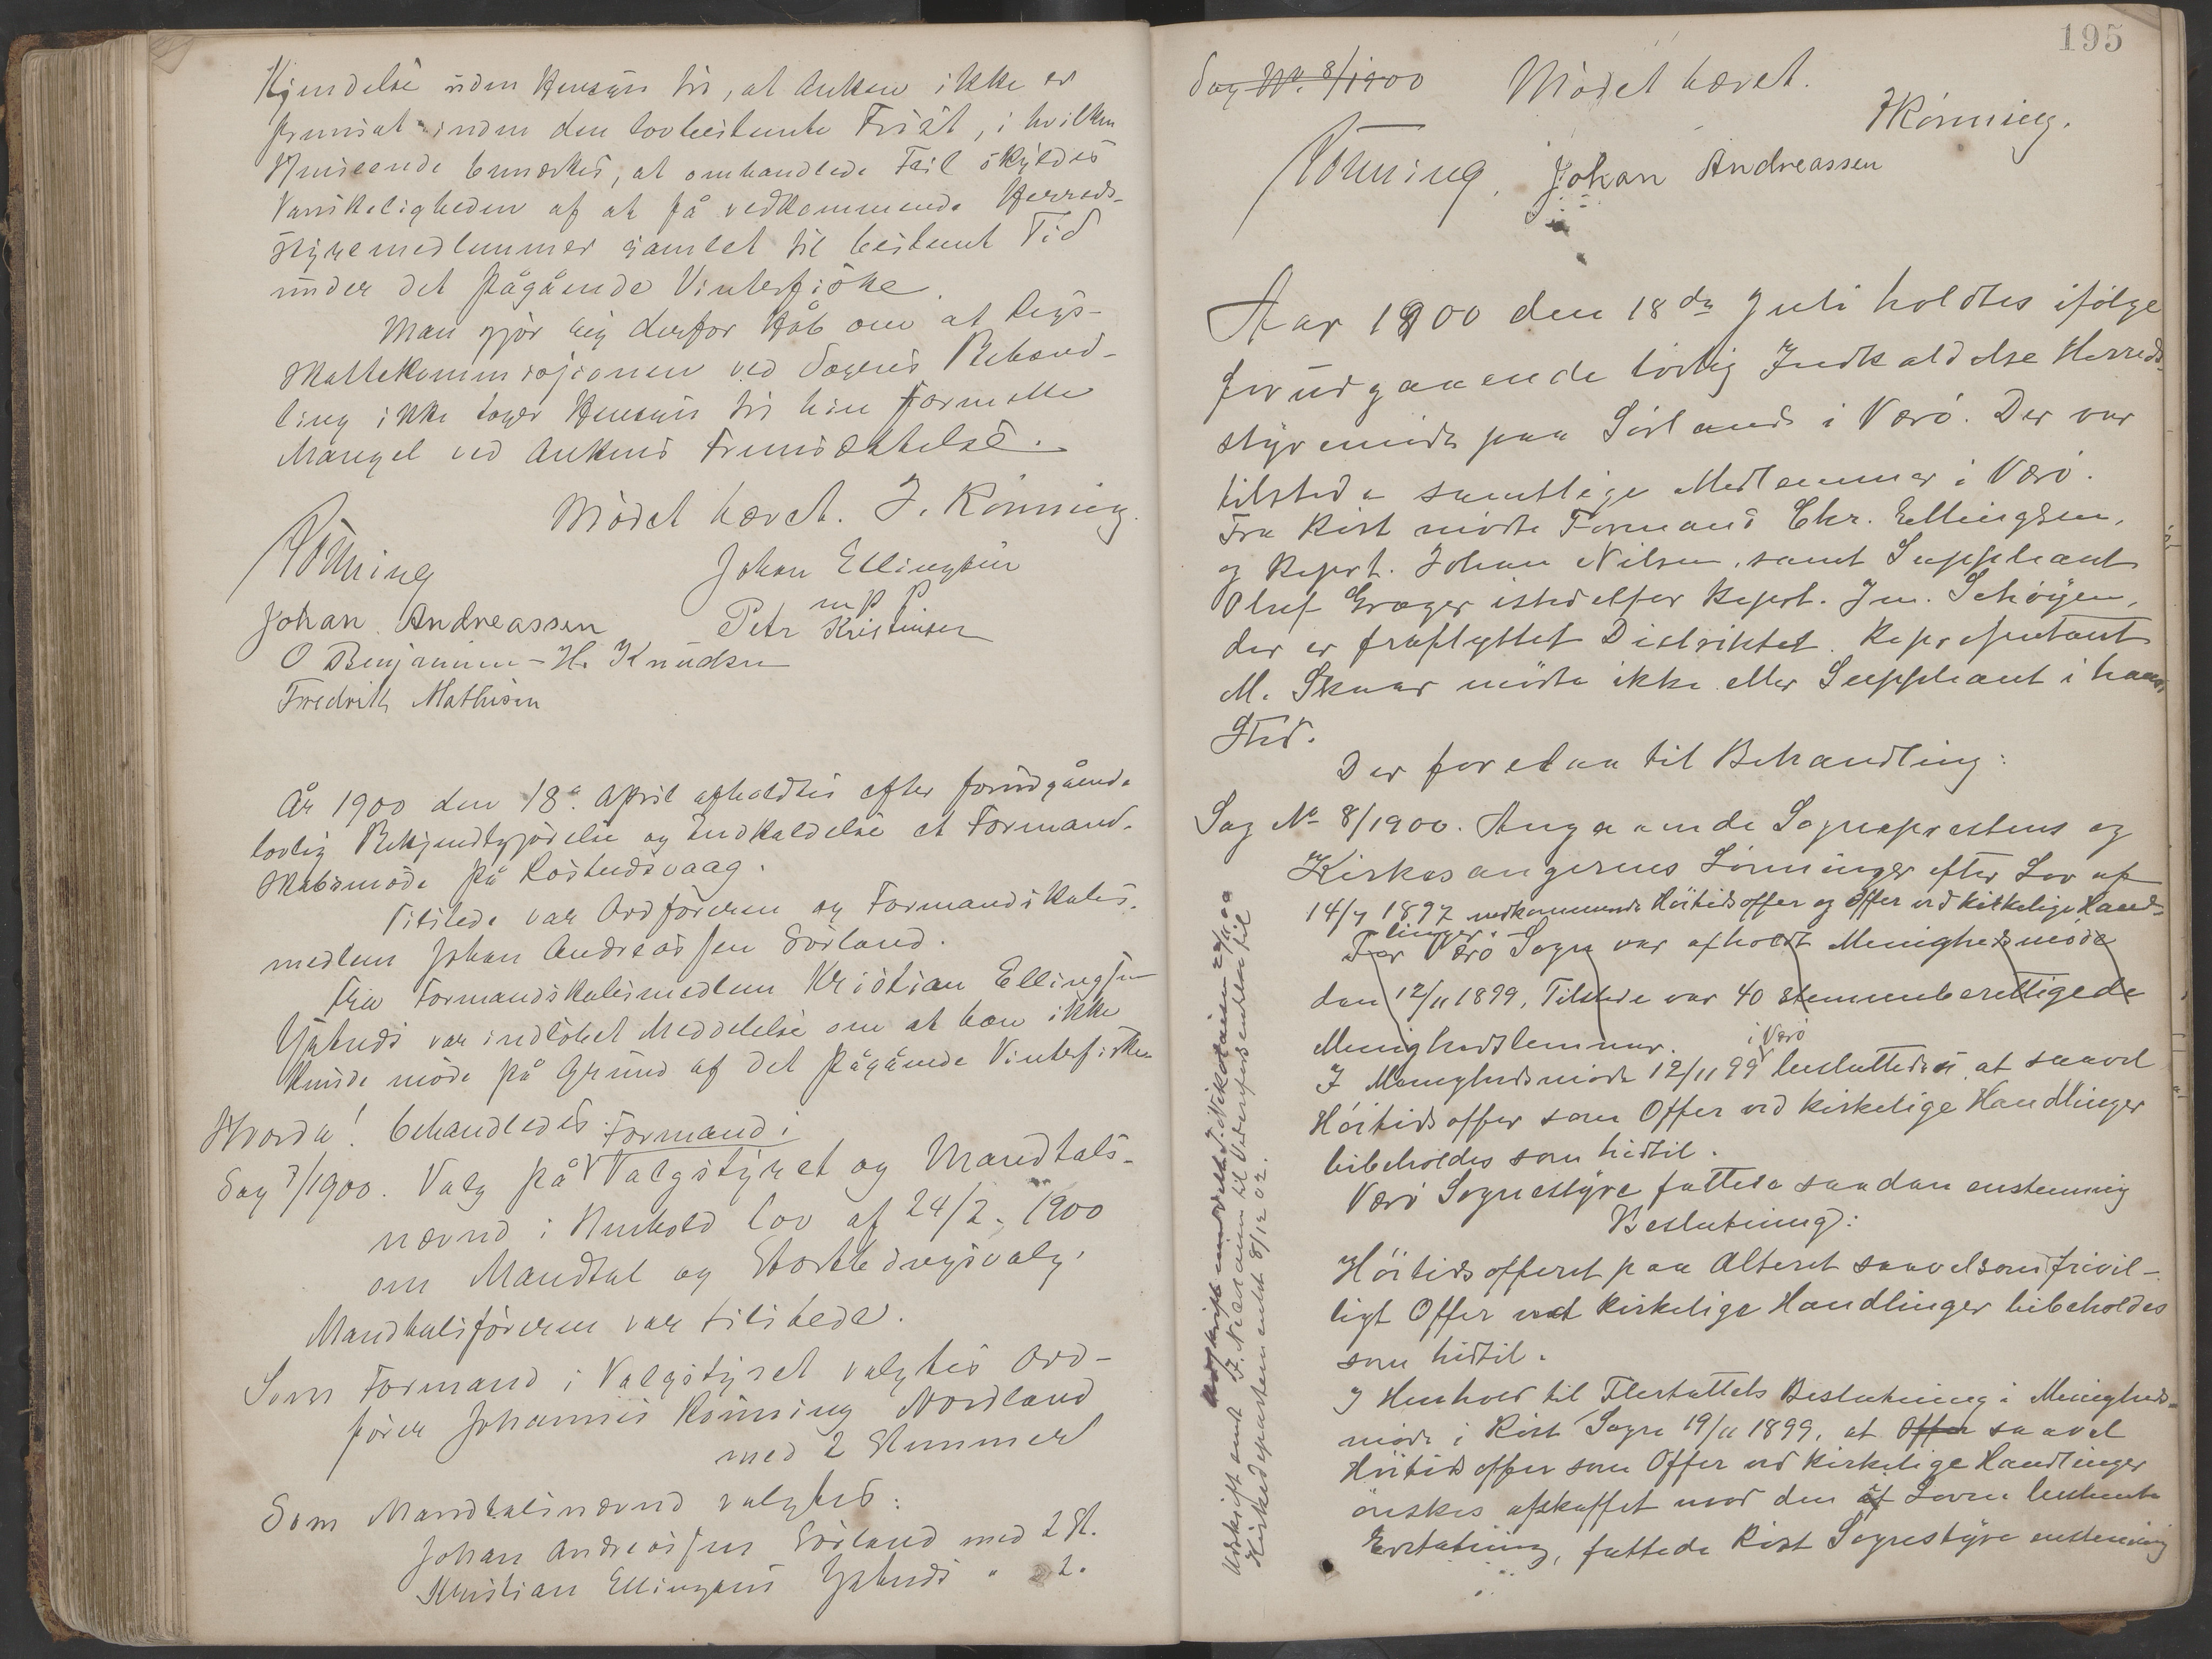 Kjendelse uden Hensyn til, at Anken ikke er
fremsat inden den lovbestemte Frist, i hvilken
Henseende bemærkes, at omhandlede Feil skyldes
Vanskeligheden af at få vedkommende Herreds-
styremedlemmer samlet til bestemt Tid
under det pågående Vinterfiske.
Man gjør sig derfor Håb om at Rigs-
skattekommissjonen ved Sagens Behand-
ling ikke tager Hensyn til hin formelle
Mangel ved Ankens Fremsættelse.
Mødet hævet. J. Rönning.
Rönning
Johan Ellingsen
m p p
Johan Andreassen
Petr Kristensen
O Benjamin - H. Knudsen
Fredrik Mathisen
År 1900 den 18de April afholdtes efter forudgående
lovlig Bekjendtgjörelse og Indkaldelse et Formand-
skabsmöde på Röstudsvaag.
Tilstede var Ordföreren og Formandskabs-
medlem Johan Andreassen Sörland.
Fra Formandskabsmedlem Kristian Ellingsen
Ystnes var indlöbet Meddelelse om at han ikke
kunde möde på Grund af det pågående Vinterfiske
Hvorda! behandledes:
Formand i
Sag 7/1900. Valg på Valgstyret og Mandtals-
nævnd i Henhold lov af 24/2. 1900
om Mandtal og Storthingsvalg.
Mandtalsföreren var tilstede.
Som Formand i Valgstyret valgtes Ord-
förer Johannes Rönning Nordland
med 2 Stemmer
Som Mandtalsnævnd valgtes:
Johan Andreassen Sörland med 2 St.
Kristian Ellingsen " 2.
195
Sag No. 8/1900 Mødet hævet.
JRönning.
Rönning. Johan Andreassen
Aar 1900 den 18de Juli holdtes ifölge
forudgaaende lovlig Indkaldelse Herreds-
styremöde paa Sörland i Værö. Der var
tilstede samtlige Medlemmer i Værö.
Fra Röst mödte Formand Chr. Ellingsen,
og Repræ. Johan Nilsen, samt Suppleant
Oluf Greger istedetfor Repræ. Jn. Schöyen,
der er fraflyttet Distriktet. Repræsentant
M. Skaar mödte ikke eller Suppleant i hans
Sted.
Der forelaa til Behandling:
Sag No 8/1900. Angaaende Sogneprestens og
Kirkesangerens Lönninger efter Lov af
14/7 1897 vedkommende Höitidsoffer og Offer ved kirkelige Hand-
linger.
For Værö Sogn var afholdt Menighedsmöde
den 12/11 1899. Tilstede var 40 stemmeberettigede
Menighedslemmer.
i Værö
I Menighedsmöde 12/11 99 besluttedes, at saavel
Höitidsoffer som Offer ved kirkelige Handlinger
bibeholdes som hidtil.
Værö Sognestyre fattede saadan enstemmig
Beslutning:
Höitidsofferet paa Alteret saavelsom frivil-
ligt Offer ved kirkelige Handlinger bibeholdes
som hidtil.
I Henhold til Flertallets Beslutning i Menigheds-
möde i Röst Sogn 19/11 1899, at Offer saavel
Höitidsoffer som Offer ved kirkelige Handlinger
önskes afskaffet mod den af Loven bestemte
Erstatning, fattede Röst Sognestyre enstemmig
Udskrift
Udskrift sendt til
Kirkedepartementet 8/12 02.